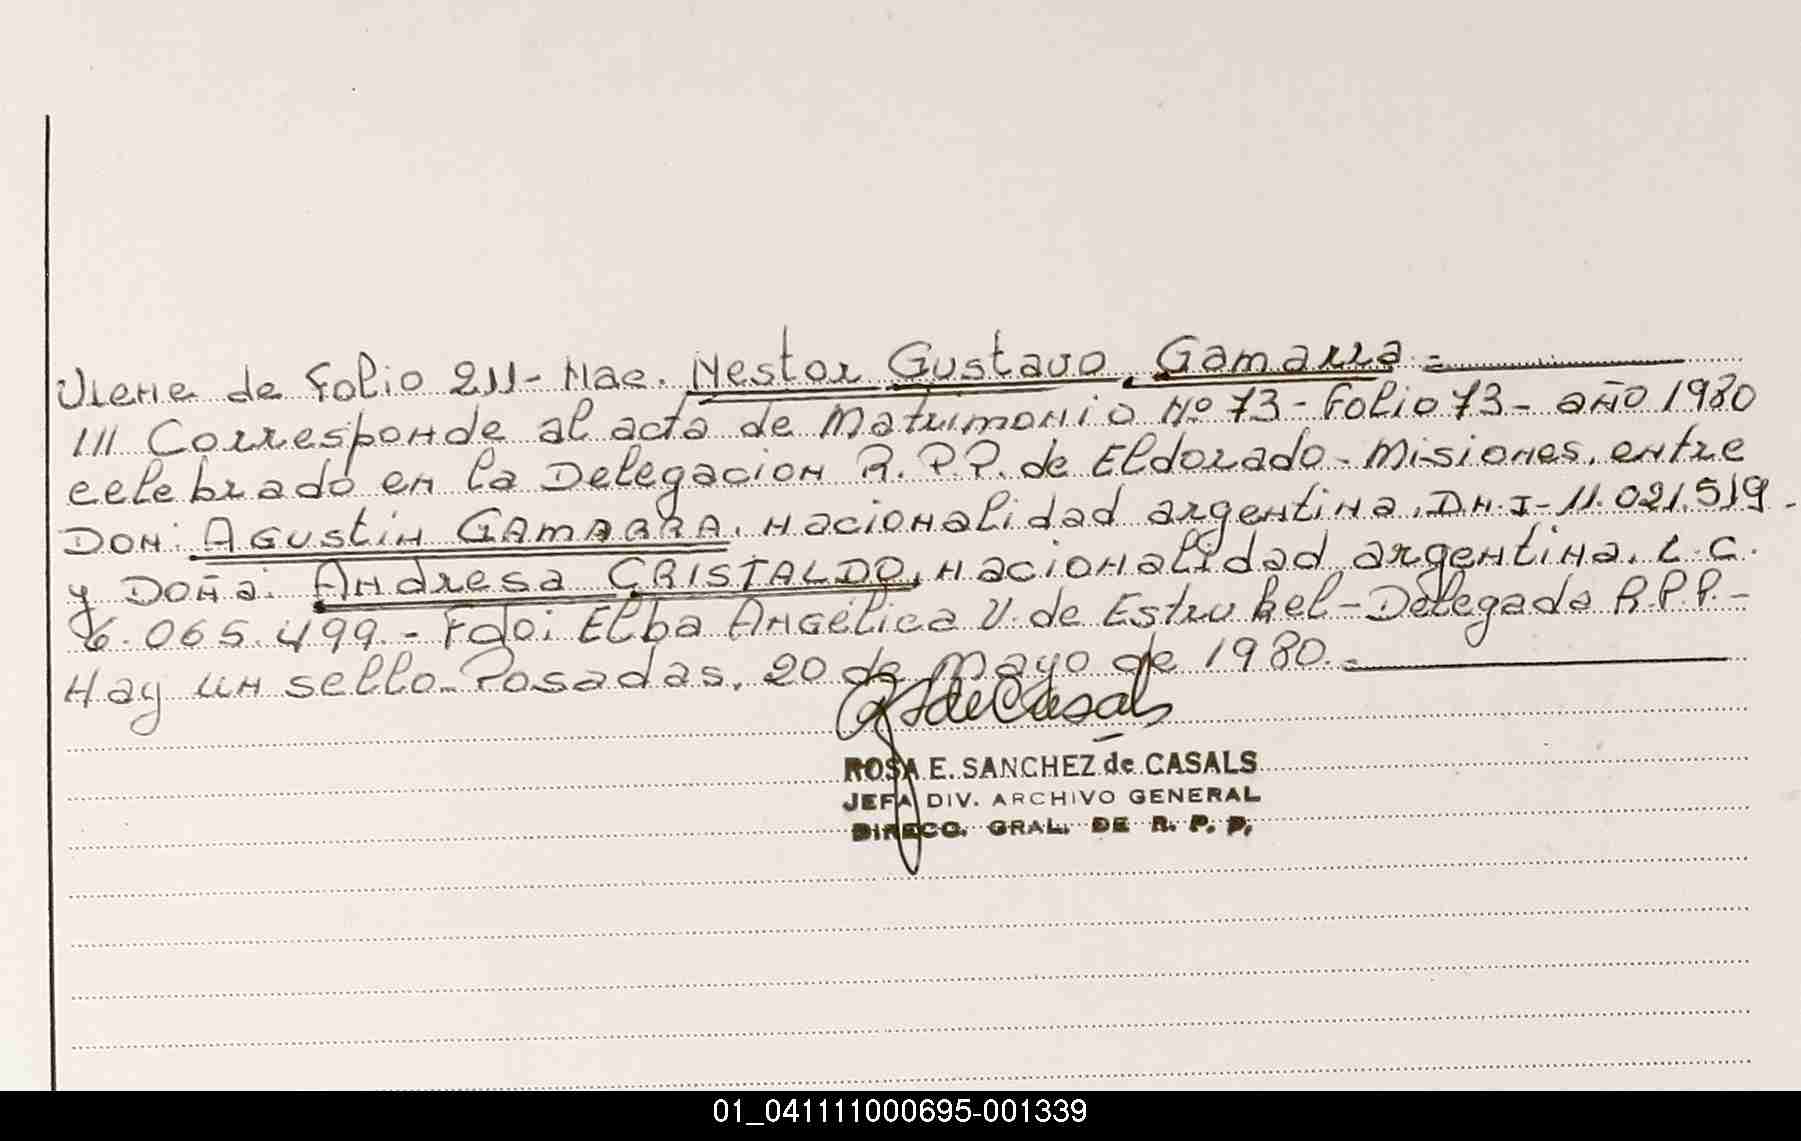 Viene de Folio 211- Nac. Nestor Gustavo Gamarra. =
/// Corresponde al acta de Matrimonio Nº 73 - Folio 73 - año 1980
celebrado en la Delegacion R.P.P. de Eldorado - Misiones, entre
Don: Agustin GAMARRA, nacionalidad argentina, D.N.I - 11.021.519 -
y Doña: Andresa CRISTALDO, nacionalidad argentina, L.C.
6.065.499. - Fdo: Elba Angélica V. de Estrubel - Delegada R.P.P. -
Hay un sello - Posadas, 20 de Mayo de 1980. =
deCasals
ROSA E. SANCHEZ de CASALS
JEFA DIV. ARCHIVO GENERAL
DIRECC. GRAL. DE R. P. P.
01_041111000695-001339